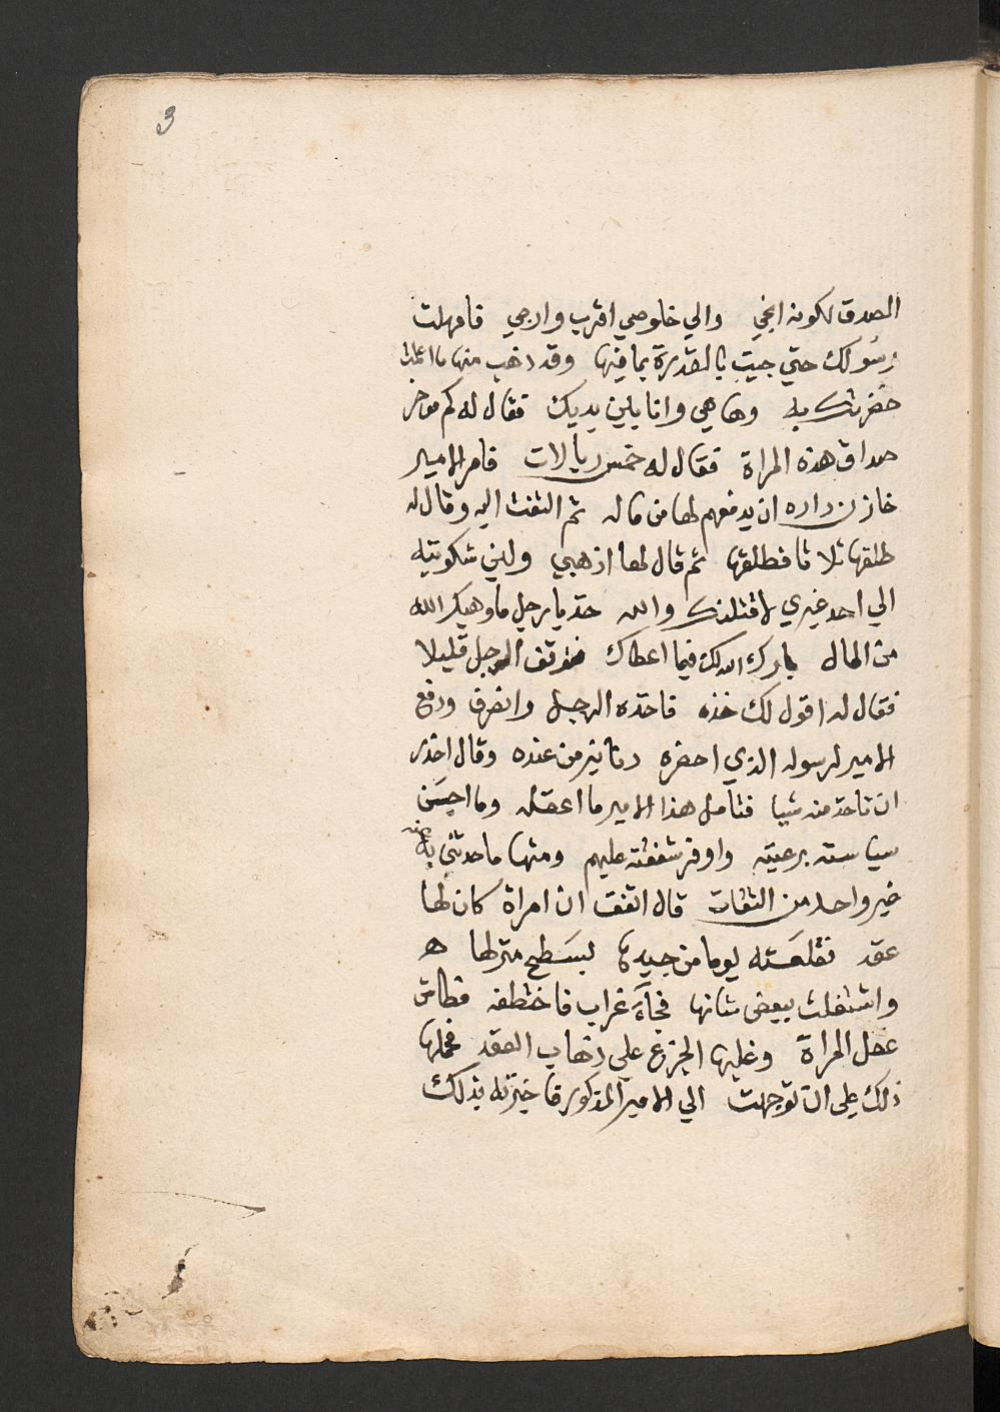 3
الصدق لكونه انجي والي خلوصي اقرب وارجي فامهلت
رسولك حتي جيت بالقدرة بما فيها وقد ذهب منها ما اعلمت
حضرتك به وها هي وانا بين يديك فقال له كم موخر
صداق هذه المراة فقال له خمس ريالات فامر الامير
خازن داره ان يدفعهم لها من ماله ثم التفت اليه وقال له
طلقها ثلاثا فطلقها ثم قال لها اذهبي ولين شكوتيه
الي احد غيري لاقتلنك والله خذ يا رجل ما وهبك الله
من المال بارك الله لك فيما اعطاك فتوقف الرجل قليلا
فقال له اقول لك خذه فاخذه الرجل وانصرف ودفع
الامير لرسوله الذي احضره دنانير من عنده وقال احذر
ان تاخذ منه شيا فتامل هذا الامير ما اعقله وما احسن
سياسته برعيته واوفر شفقته عليهم ومنها ما حدثني به عنه
غير واحد من الثقات قال اتفق ان امراة كان لها
عقد فقلعته يوما من جيدها بسطح منزلها ه
واشتغلت ببعض شانها فجآء غراب فاختطفه فطاش
عقل المراة وغلبها الجزع علي ذهاب العقد فحملها
ذلك علي ان توجهت الي الامير المذكور فاخبرته بذلك